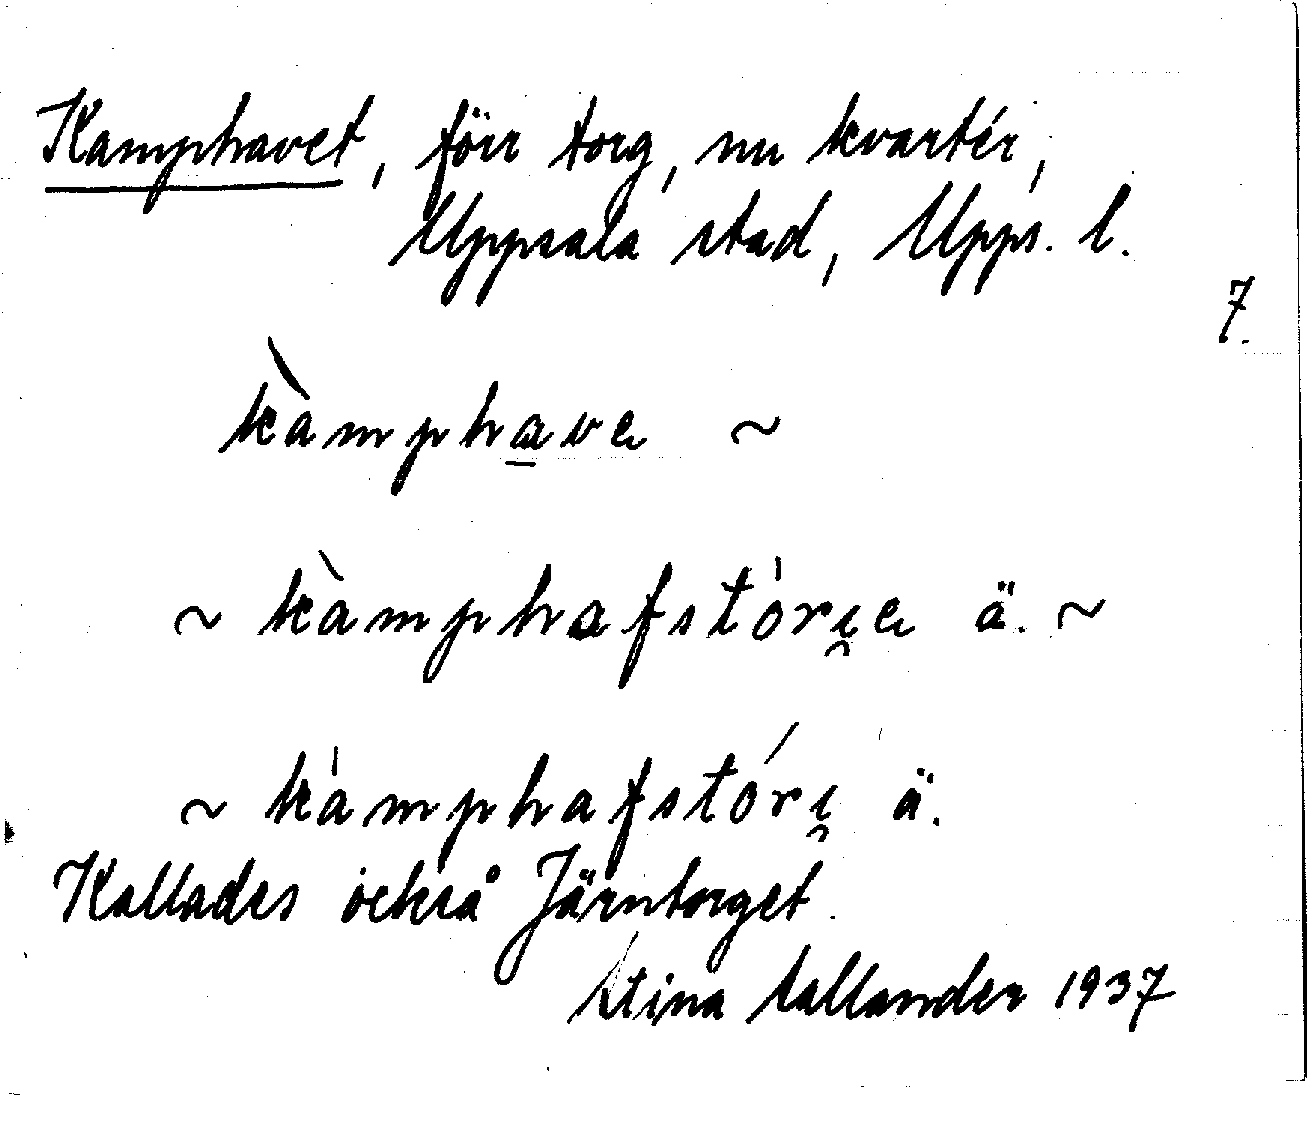 Kamphavet, förr torg, nu kvartér,
Uppsala stad, Upps. l.
7.
kàmphave ~
~ kàmphafstórịe ä. ~
~ kámphafstórị ä.
Kallades också Järntorget.
Stina Sallander 1937